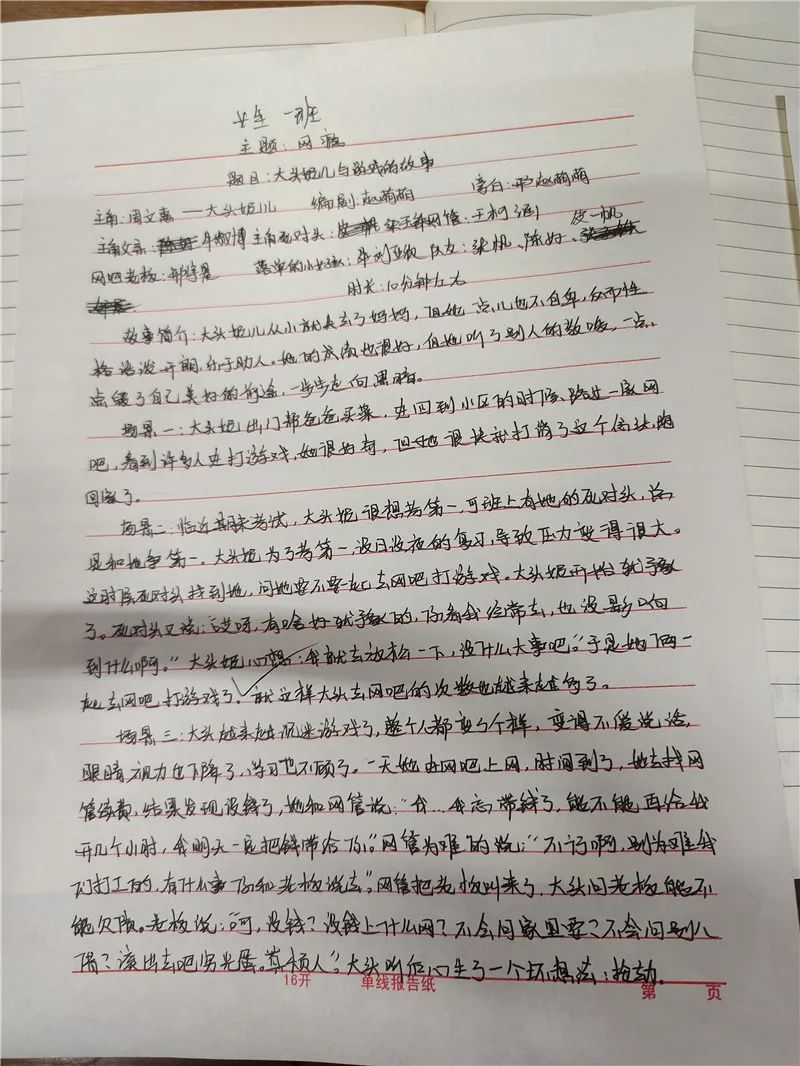 一班
主题：网瘾
题目：大头妞儿与游戏的故事
主角：周文惠——大头妞儿 编剧：赵萌萌 旁白：赵萌萌
主角父亲：牛 博 主角死对头： 网管：王柯 皮一帆
网吧老板： 落单的小 ：刘亚 队友：张帆、陈好、
时长：10分钟左右
故事简介：大头妞儿从小就失去了妈妈，但她一点儿也不自卑，反而性
格活泼开朗，乐于助人。她的成绩也很好，但她听了别人的教唆，一点
点毁了自己美好的前途，一步步走向黑暗。
场景一：大头妞出门帮爸爸买菜，走回到小区的时候，路过一家网
吧，看到许多人在打游戏，她很好奇，但她很快就打消了这个念头，跑
回家了。
场景二：临近期末考试，大头妞很想考第一，可班上有她的死对头，总
是和她争第一。大头妞为了考第一，没日没夜的复习，导致压力变得很大。
这时候死对头找到她，问她要不要一起去网吧打游戏。大头妞开始就犹豫
了。死对头又说：“哎呀，有啥好犹豫的，你看我经常去，也没影响
到什么啊。”大头妞心想：“我就去放松一下，没什么大事吧。”于是她俩一
起去网吧打游戏了。就这样大头去网吧的次数也越来越多了。
场景三：大头越来越沉迷游戏了，整个人都变了个样，变得不爱说话，
眼睛视力也下降了，学习也不顾了。一天她由网吧上网，时间到了，她去找网
管续费，结果发现没钱了，她和网管说：“我…我忘带钱了，能不能再给我
开几个小时，我明天一定把钱带给你。”网管为难的说：“不行啊，别为难我
们打工的，有什么事你和老板说去。”网管把老板叫来了，大头问老板能不
能欠账。老板说：“呵，没钱？没钱上什么网？不会问家里要？不会问别人
借？滚出去吧穷光蛋。真烦人”。大头听后心生了一个坏想法：抢劫。
16开 单线报告纸 第 页